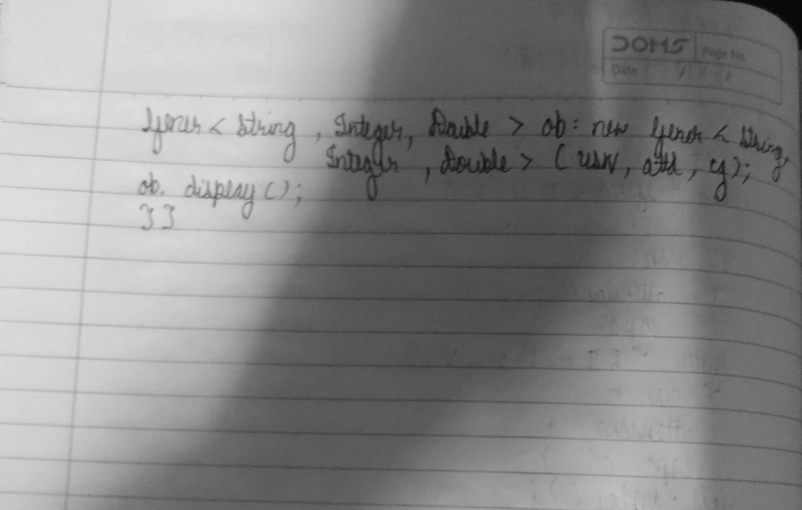 DOMS Page No.
Date
Gener < String , Integer, Double > ob = new Gener < String,
Integer , Double > (usn, att, cg);
ob. display ();
}}